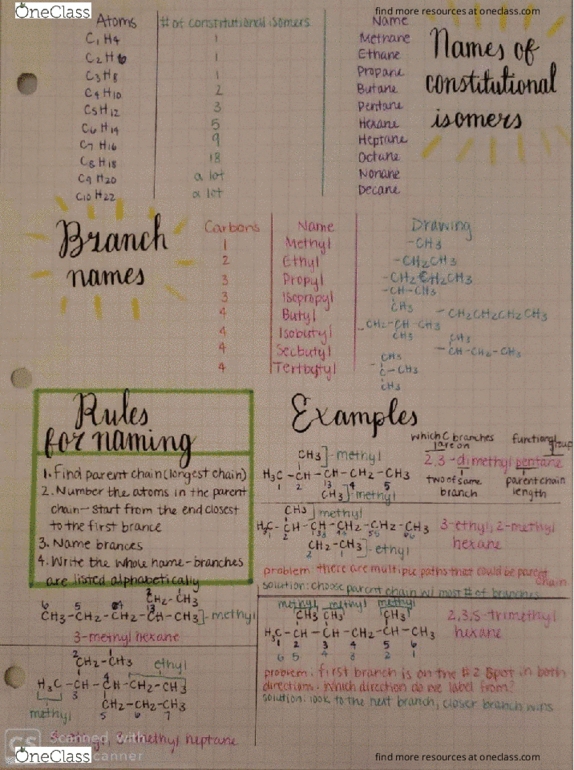 OneClass
find more resources at oneclass.com
Atoms # of constitutional isomers Name
C1H4 1 Methane
C2H6 1 Ethane
C3H8 1 Propane
C4H10 2 Butane
C5H12 3 Pentane
C6H14 5 Hexane
C7H16 9 Heptane
C8H18 18 Octane
C9H20 a lot Nonane
C10H22 a lot Decane
Names of
constitutional
isomers
Branch
names
Carbons Name Drawing
1 Methyl -CH3
2 Ethyl -CH2CH3
3 Propyl -CH2CH2CH3
3 Isopropyl -CH-CH3
CH3
4 Butyl -CH2CH2CH2CH3
4 Isobutyl -CH2-CH-CH3
CH3
4 Secbutyl -CH-CH2-CH3
4 Tertbutyl
CH3
-C-CH3
CH3
Rules
for naming
1. Find parent chain (longest chain)
2. Number the atoms in the parent
chain-start from the end closest
to the first brance
3. Name brances
4. Write the whole name-branches
are listed alphabetically
CH2-CH3
CH3-CH2-CH2-CH-CH3]-methyl
3-methyl hexane
CH2-CH3 ethyl
H3C-CH-CH-CH2-CH3
methyl CH2-CH2-CH3
5 6 7
heptane
Examples
which C branches
are on
functional group
CH3]-methyl
2,3-dimethyl pentane
H3C-CH-CH-CH2-CH3
1 2 3 4 5
CH3]methyl
two of same
branch
parent chain
length
CH3]methyl
H3C-CH-CH-CH2-CH2-CH3
3-ethyl, 2-methyl
hexane
CH2-CH3]-ethyl
problem: there are multiple paths that could be parent chain
solution: choose parent chain w/ most # of branches
methyl methyl methyl
CH3 CH3 CH3
2,3,5-trimethyl
hexane
H3C-CH-CH-CH2-CH-CH3
1 2 3 4 5 6
6 5 4 3 2 1
problem: first branch is on the #2 spot in both
directions: which direction do we label from?
solution: look to the next branch, closer branch wins
CS Scanned with
OneClass
find more resources at oneclass.com